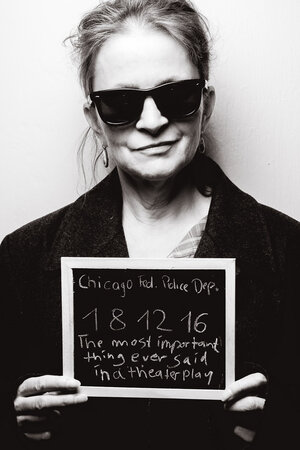 Chicago Fed. Police Dep.
18 12 16
The most important
thing ever said
in a theaterplay